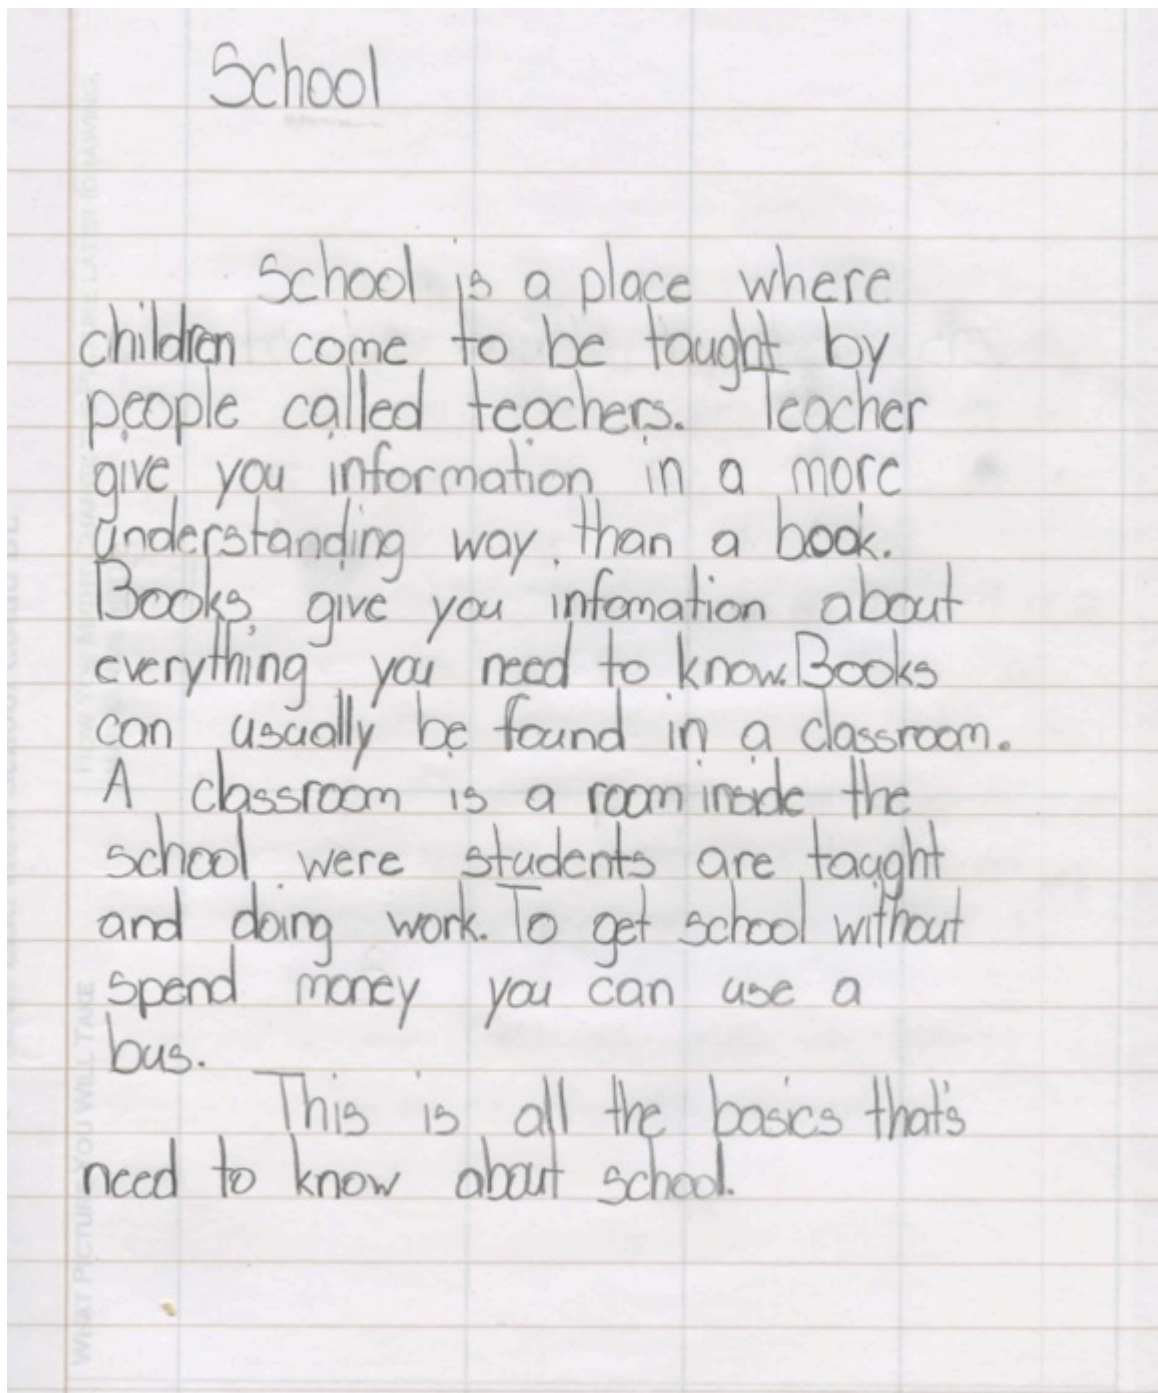 School
School is a place where
children come to be taught by
people called teachers. Teacher
give you information in a more
understanding way than a book.
Books give you infomation about
everything you need to know. Books
can usually be found in a classroom.
A classroom is a room inside the
school were students are taught
and doing work. To get school without
spend money you can use a
bus.
This is all the basics that's
need to know about school.